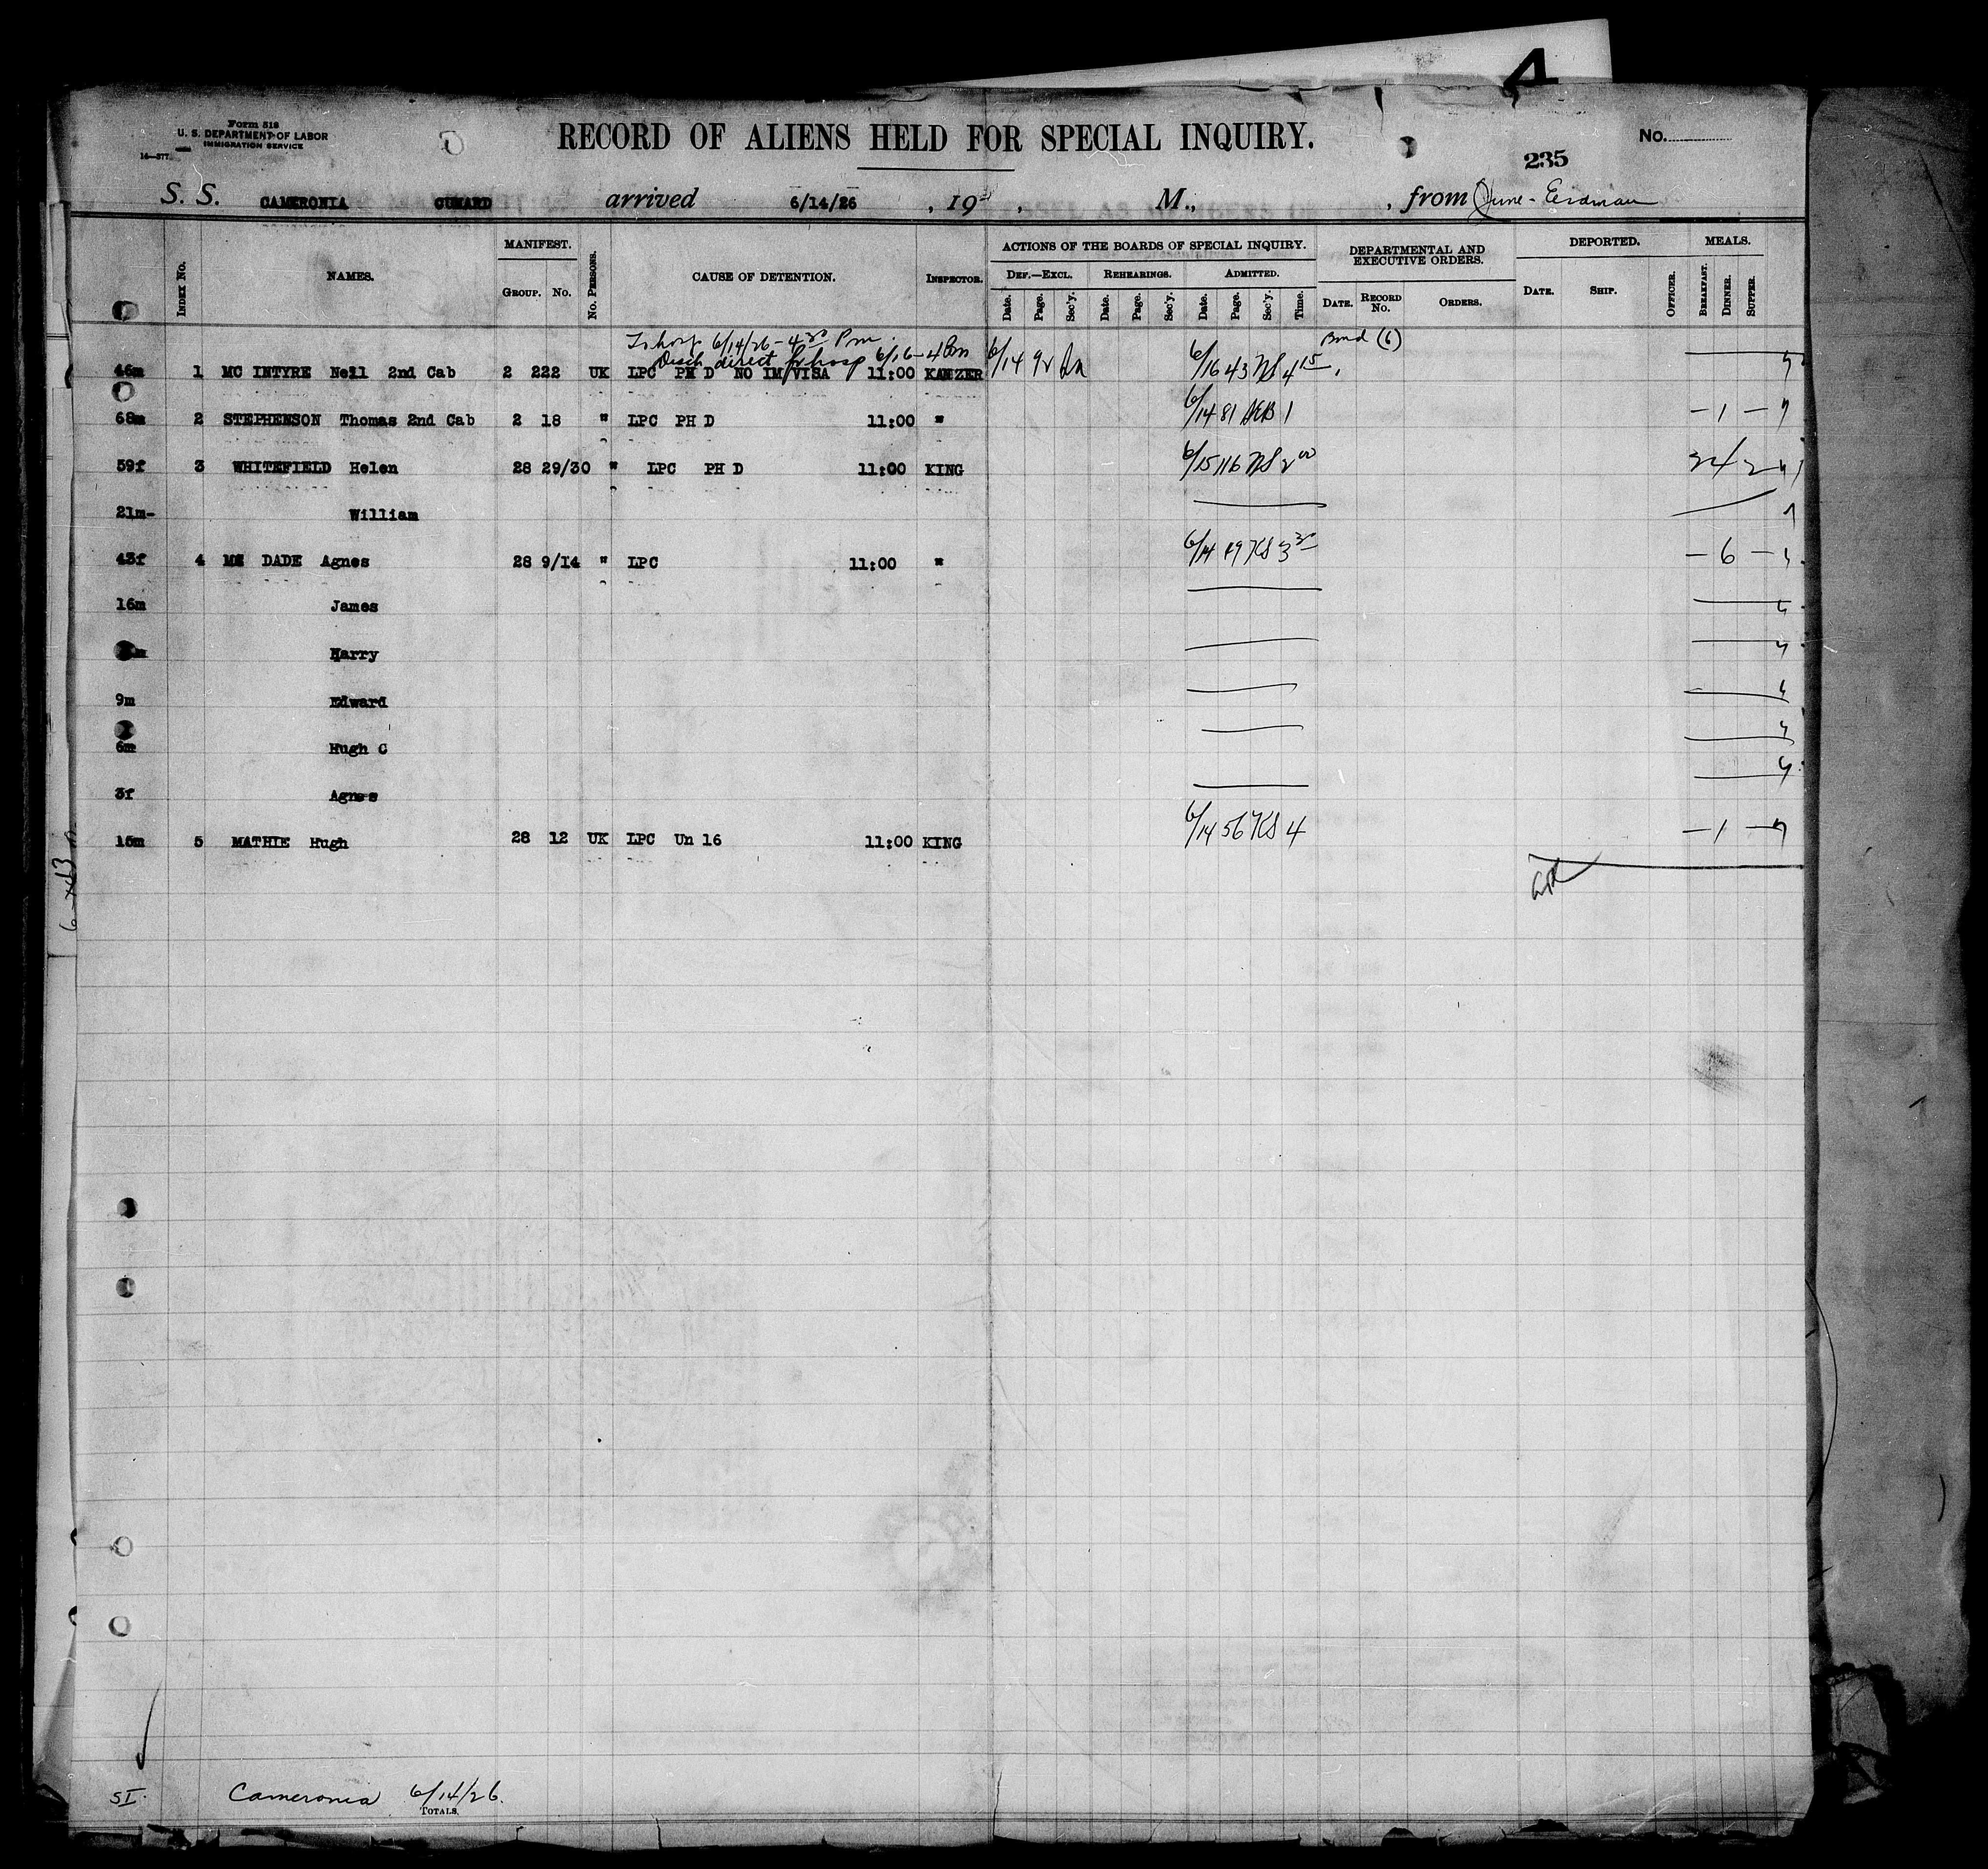 4
Form 518
U. S. DEPARTMENT OF LABOR
IMMIGRATION SERVICE
14—577
RECORD OF ALIENS HELD FOR SPECIAL INQUIRY.
No.
235
S. S. CAMERONIA CUNARD arrived 6/14/26 , 19 , M., , from June - Erdman
INDEX No. NAMES. MANIFEST. GROUP. No. No. PERSONS. CAUSE OF DETENTION. INSPECTOR. ACTIONS OF THE BOARDS OF SPECIAL INQUIRY. DEF.—EXCL. Date. Page. Sec'y. REHEARINGS. Date. Page. Sec'y. ADMITTED. Date. Page. Sec'y. Time. DEPARTMENTAL AND EXECUTIVE ORDERS. DATE. RECORD No. ORDERS. DEPORTED. DATE. SHIP. OFFICER. MEALS. BREAKFAST. DINNER. SUPPER.
To hosp 6/14/26 - 4 30 Pm. Bond (6)
Disch direct fr hosp 6/16 - 4 Pm
46m 1 MC INTYRE Neil 2nd Cab 2 222 UK LPC PH D NO IM VISA 11:00 KANZER 6/14 6/16 43 NS 4 15
68m 2 STEPHENSON Thomas 2nd Cab 2 18 " LPC PH D 11:00 " 6/14 81 AEB 1 — 1 —
59f 3 WHITEFIELD Helen 28 29/30 " LPC PH D 11:00 KING 6/15 116 NS 2 00 2 4 2
21m- William
43f 4 MC DADE Agnes 28 9/14 " LPC 11:00 " 6/14 49 KS 3 30 — 6 —
16m James
m Harry
9m Edward
6m Hugh C
3f Agnes
15m 5 MATHIE Hugh 28 12 UK LPC Un 16 11:00 KING 6/14 56 KS 4 — 1 —
SI. Cameronia 6/14/26.
TOTALS.